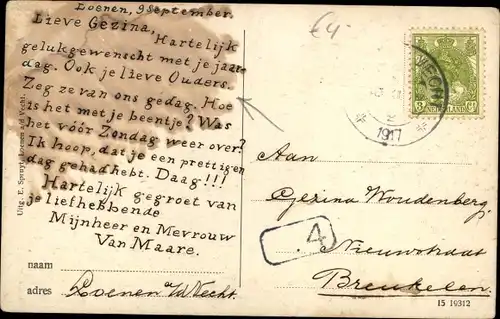 Loenen, 9 September.
Lieve Gezina, Hartelijk
gelukgewenscht met je jaar-
dag. Ook je lieve Ouders.
Zeg ze van ons gedag. Hoe
is het met je beentje? Was
het vóór Zondag weer over?
Ik hoop, dat je een prettigen
dag gehad hebt. Daag!!!
Hartelijk gegroet van
je liefhebbende
Mijnheer en Mevrouw
Van Maare.
naam
adres Loenen a/d Vecht.
Uitg. E. Spruyt, Loenen a/d Vecht.
£4-
1917
3 CT
NEDERLAND
Aan
Gezina Woudenberg,
4
Nieuwstraat
Breukelen.
15 19312